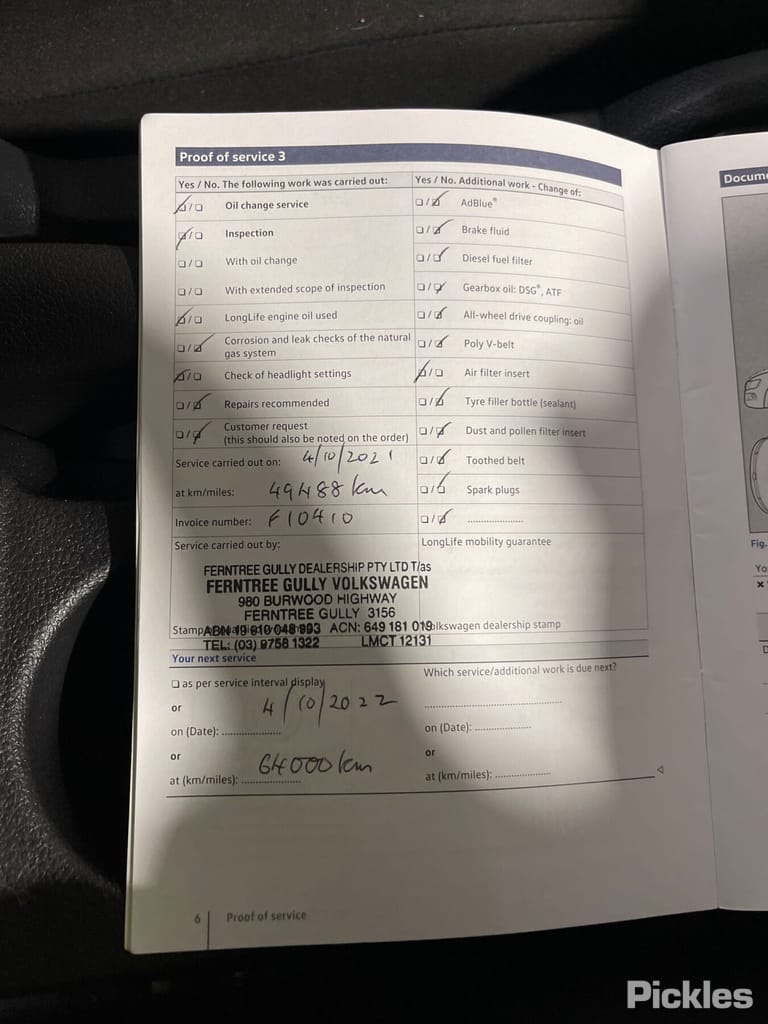 Proof of service 3
Yes / No. The following work was carried out:
Oil change service
Inspection
With oil change
With extended scope of inspection
LongLife engine oil used
Corrosion and leak checks of the natural
gas system
Check of headlight settings
Repairs recommended
Customer request
(this should also be noted on the order)
Service carried out on: 4/10/2021
at km/miles: 49488 km
Invoice number: F10410
Service carried out by:
FERNTREE GULLY DEALERSHIP PTY LTD T/as
FERNTREE GULLY VOLKSWAGEN
980 BURWOOD HIGHWAY
FERNTREE GULLY 3156
ACN: 649 181 019
TEL: (03) 9758 1322 LMCT 12131
Yes / No. Additional work - Change of:
AdBlue®
Brake fluid
Diesel fuel filter
Gearbox oil: DSG®, ATF
All-wheel drive coupling: oil
Poly V-belt
Air filter insert
Tyre filler bottle (sealant)
Dust and pollen filter insert
Toothed belt
Spark plugs
LongLife mobility guarantee
Volkswagen dealership stamp
Your next service
as per service interval display
or
4/10/2022
on (Date): ....................
or
64000 km
at (km/miles): ....................
Which service/additional work is due next?
on (Date): ....................
or
at (km/miles): ....................
6 Proof of service
Docume
Fig.
Yo
Pickles